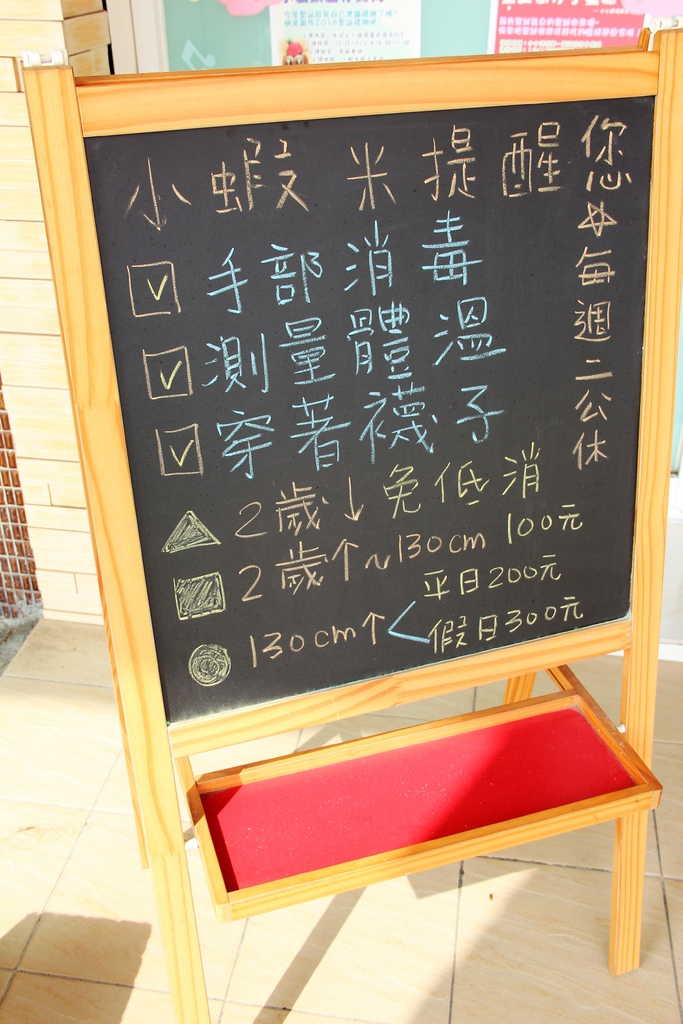 小蝦米提醒您
☆每週二公休
☑手部消毒
☑測量體溫
☑穿著襪子
▲2歲↓免低消
■2歲↑~130cm 100元
●130cm↑<平日200元
假日300元